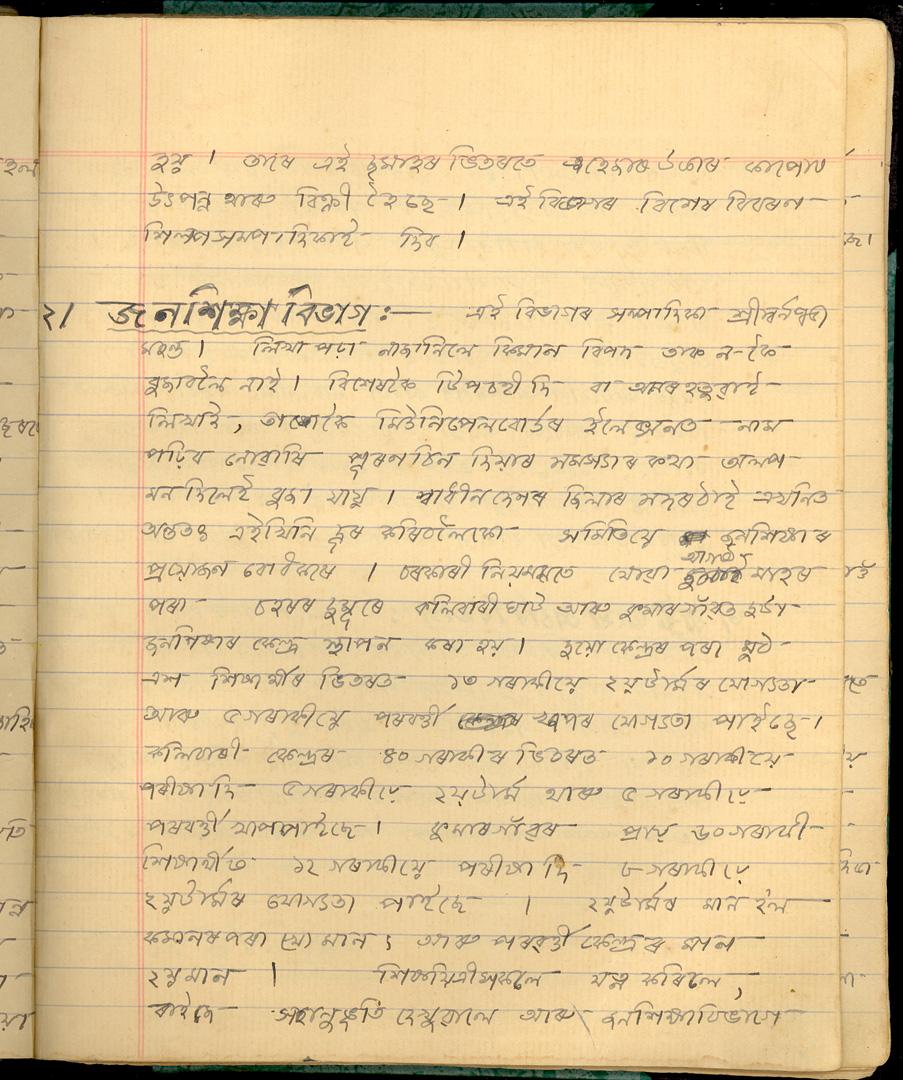 হয়। তাৰে এই ছমাহৰ ভিতৰতে এহেজাৰ টকাৰ কাপোৰ
উৎপন্ন আৰু বিক্ৰী হৈছে। এই বিভাগৰ বিশেষ বিবৰণ
শিল্পসম্পাদিকাই দিব।
২। জনশিক্ষা বিভাগ :— এই বিভাগৰ সম্পাদিকা শ্ৰীস্বৰ্ণপ্ৰভা
মহন্ত। লিখা পঢ়া নাজানিলে কিমান বিপদ তাক ন-কৈ
বুজাবলৈ নাই। বিশেষকৈ টিপচহী দি বা আনৰ হতুৱাই
লিখাই, তাতোকৈ মিউনিপেলবোৰ্ডৰ ইলেক্সনত নাম
পঢ়িব নোৱাৰি পূৰণ চিন দিয়াৰ সমস্যাৰ কথা অলপ
মন দিলেই বুজা যায়। স্বাধীন দেশৰ জিলাৰ সদৰ ঠাই এখনিত
অন্ততঃ এইখিনি দূৰ কৰিবলৈকো সমিতিয়ে জনশিক্ষাৰ
প্ৰয়োজন বোধ কৰে। চৰকাৰী নিয়মমতে যোৱা আগষ্ট মাহৰ
পৰা চহৰৰ দুমূৰে কলিবাৰী ঘাট আৰু কুমাৰগাঁৱত দুটা
জনশিক্ষাৰ কেন্দ্ৰ স্থাপন কৰা হয়। দুয়ো কেন্দ্ৰৰ পৰা মুঠ
এশ শিক্ষাৰ্থীৰ ভিতৰত ১৩ গৰাকীয়ে ২য় টাৰ্মৰ যোগ্যতা
আৰু ৫ গৰাকীয়ে পৰবৰ্ত্তী খাপৰ যোগ্যতা পাইছে।
কলিবাৰী কেন্দ্ৰৰ ৪০ গৰাকীৰ ভিতৰত ১০ গৰাকীয়ে
পৰীক্ষা দি ৫ গৰাকীয়ে ২য় টাৰ্ম আৰু ৫ গৰাকীয়ে
পৰবৰ্ত্তী খাপ পাইছে। কুমাৰগাঁৱৰ প্ৰায় ৬০ গৰাকী
শিক্ষাৰ্থীত ১২ গৰাকীয়ে পৰীক্ষা দি ৮ গৰাকীয়ে
২য় টাৰ্মৰ যোগ্যতা পাইছে। ২য় টাৰ্মৰ মান হ'ল
কমানৰ পৰা মান; আৰু পৰবৰ্ত্তী কেন্দ্ৰৰ মান
২য় মান। শিক্ষয়িত্ৰীসকলে যত্ন কৰিলে,
ৰাইজে সহানুভূতি দেখুৱালে আৰু জনশিক্ষাবিভাগে